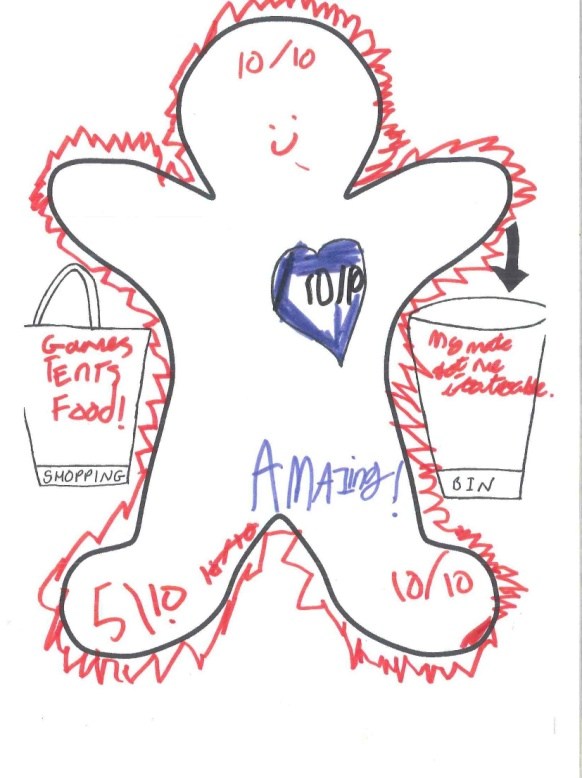 10/10
10/10
Games
TENTS
Food!
SHOPPING
My mate
got me
BIN
AMAzing!
5\10
10/10